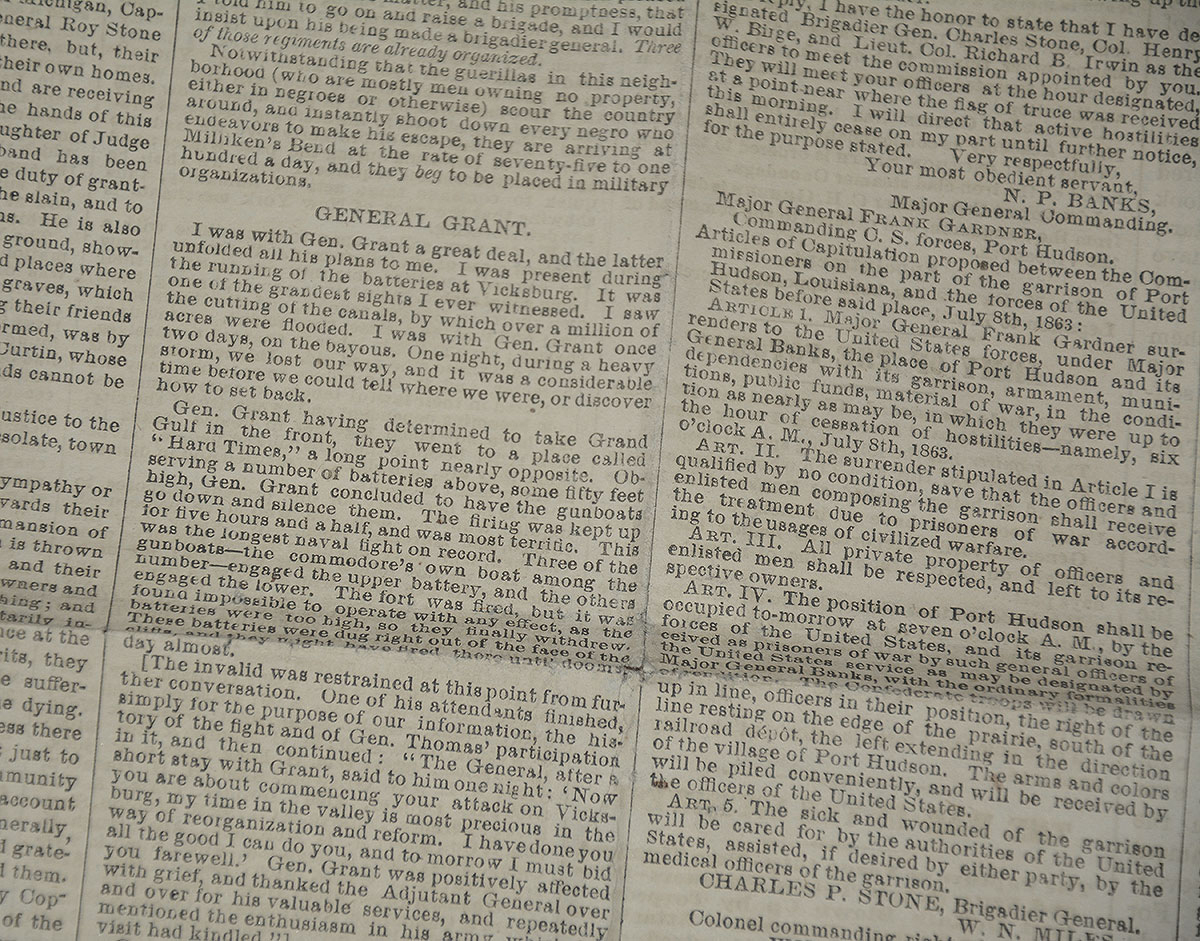 Michigan, Cap-
eneral Roy Stone
there, but, their
their own homes.
nd are receiving
he hands of this
ughter of Judge
band has been
e duty of grant-
he slain, and to
ns. He is also
ground, show-
d places where
graves, which
g their friends
ormed, was by
Curtin, whose
ds cannot be
ustice to the
solate, town
ympathy or
wards their
mansion of
is thrown
and their
owners and
hing; and
tarily in-
nce at the
rits, they
e suffer-
e dying.
ess there
just to
mmunity
account
nerally,
d grate-
d them.
y Cop-
of the
and his promptness, that
I told him to go on and raise a brigade, and I would
insist upon his being made a brigadier general. Three
of those regiments are already organized.
Notwithstanding that the guerillas in this neigh-
borhood (who are mostly men owning no property,
either in negroes or otherwise) scour the country
around, and instantly shoot down every negro who
endeavors to make his escape, they are arriving at
Milliken's Bend at the rate of seventy-five to one
hundred a day, and they beg to be placed in military
organizations.
GENERAL GRANT.
I was with Gen. Grant a great deal, and the latter
unfolded all his plans to me. I was present during
the running of the batteries at Vicksburg. It was
one of the grandest sights I ever witnessed. I saw
the cutting of the canals, by which over a million of
acres were flooded. I was with Gen. Grant once
two days, on the bayous. One night, during a heavy
storm, we lost our way, and it was a considerable
time before we could tell where we were, or discover
how to set back.
Gen. Grant having determined to take Grand
Gulf in the front, they went to a place called
"Hard Times," a long point nearly opposite. Ob-
serving a number of batteries above, some fifty feet
high, Gen. Grant concluded to have the gunboats
go down and silence them. The firing was kept up
for five hours and a half, and was most terrific. This
was the longest naval fight on record. Three of the
gunboats—the commodore's own boat among the
number—engaged the upper battery, and the others
engaged the lower. The fort was fired, but it was
found impossible to operate with any effect, as the
batteries were too high, so they finally withdrew.
These batteries were dug right out of the face of the
cliffs, and they might have fired there until dooms-
day almost.
[The invalid was restrained at this point from fur-
ther conversation. One of his attendants finished,
simply for the purpose of our information, the his-
tory of the fight and of Gen. Thomas' participation
in it, and then continued: "The General, after a
short stay with Grant, said to him one night: 'Now
you are about commencing your attack on Vicks-
burg, my time in the valley is most precious in the
way of reorganization and reform. I have done you
all the good I can do you, and to-morrow I must bid
you farewell.' Gen. Grant was positively affected
with grief, and thanked the Adjutant General over
and over for his valuable services, and repeatedly
mentioned the enthusiasm in his army which
visit had kindled."]
reply, I have the honor to state that I have de-
signated Brigadier Gen. Charles Stone, Col. Henry
W. Birge, and Lieut. Col. Richard B. Irwin as the
officers to meet the commission appointed by you.
They will meet your officers at the hour designated,
at a point near where the flag of truce was received
this morning. I will direct that active hostilities
shall entirely cease on my part until further notice,
for the purpose stated. Very respectfully,
Your most obedient servant,
N. P. BANKS,
Major General Commanding.
Major General FRANK GARDNER,
Commanding C. S. forces, Port Hudson.
Articles of Capitulation proposed between the Com-
missioners on the part of the garrison of Port
Hudson, Louisiana, and the forces of the United
States before said place, July 8th, 1863:
ARTICLE 1. Major General Frank Gardner sur-
renders to the United States forces, under Major
General Banks, the place of Port Hudson and its
dependencies with its garrison, armament, muni-
tions, public funds, material of war, in the condi-
tion as nearly as may be, in which they were up to
the hour of cessation of hostilities—namely, six
o'clock A. M., July 8th, 1863.
ART. II. The surrender stipulated in Article I is
qualified by no condition, save that the officers and
enlisted men composing the garrison shall receive
the treatment due to prisoners of war accord-
ing to the usages of civilized warfare.
ART. III. All private property of officers and
enlisted men shall be respected, and left to its re-
spective owners.
ART. IV. The position of Port Hudson shall be
occupied to-morrow at seven o'clock A. M., by the
forces of the United States, and its garrison re-
ceived as prisoners of war by such general officers of
the United States service as may be designated by
Major General Banks, with the ordinary formalities
The Confederate troops will be drawn
up in line, officers in their position, the right of the
line resting on the edge of the prairie, south of the
railroad dépôt, the left extending in the direction
of the village of Port Hudson. The arms and colors
will be piled conveniently, and will be received by
the officers of the United States.
ART. 5. The sick and wounded of the garrison
will be cared for by the authorities of the United
States, assisted, if desired by either party, by the
medical officers of the garrison.
CHARLES P. STONE, Brigadier General.
W. N. MILES
Colonel commanding